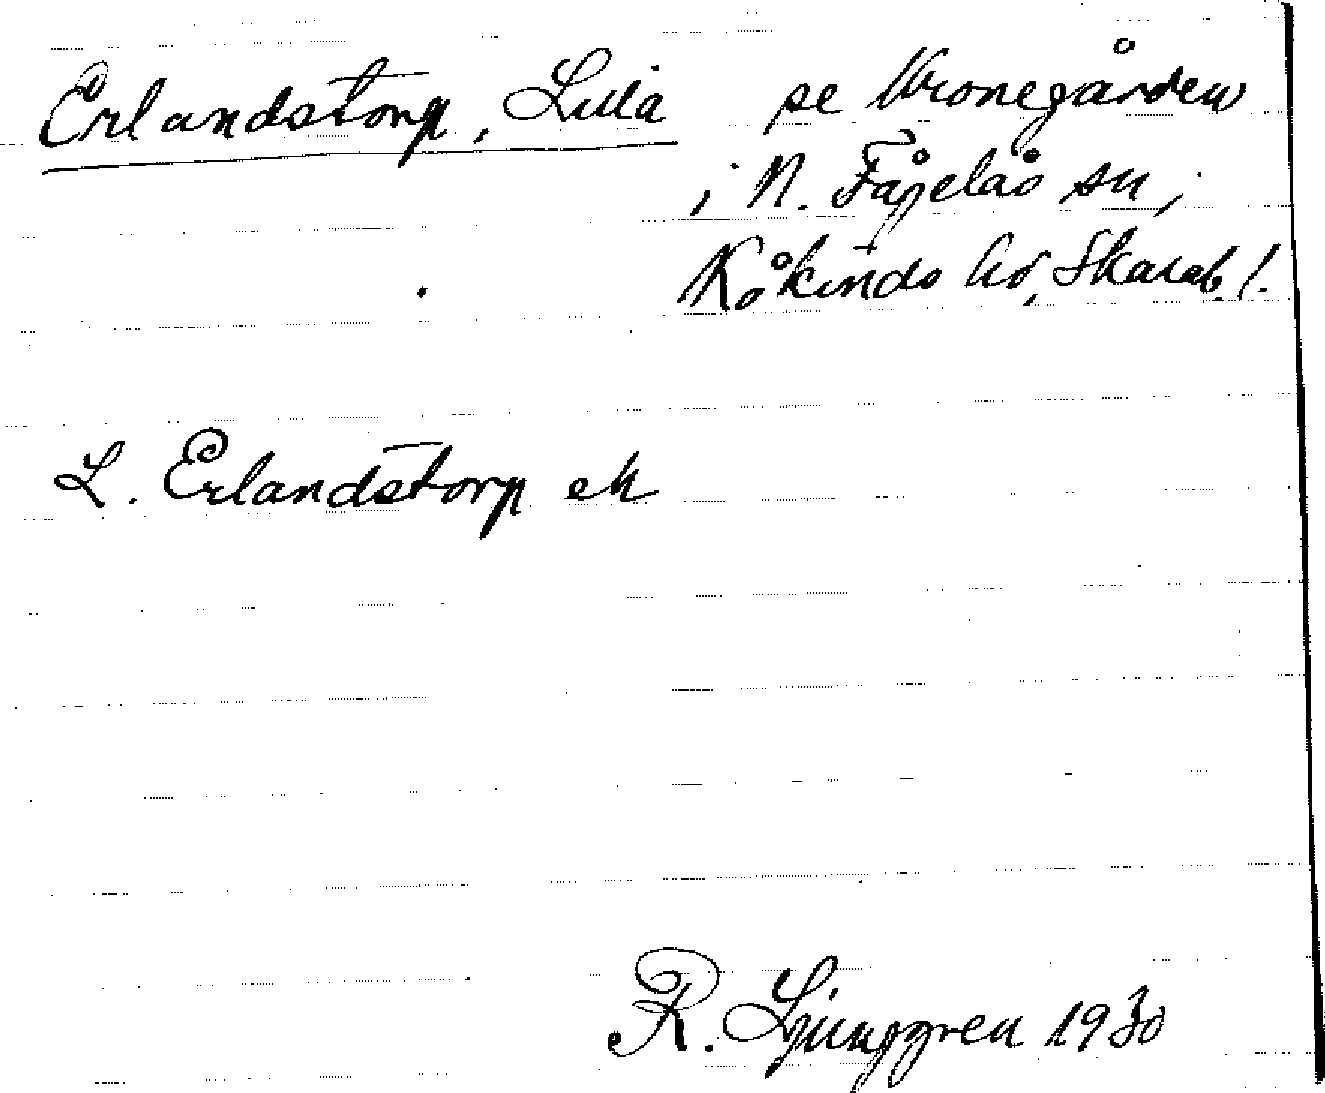 Erlandstorp, Lilla se Kronegården
i N. Fågelås sn,
Kåkinds hd, Skarab. l.
L. Erlandstorp ek
R. Ljunggren 1930